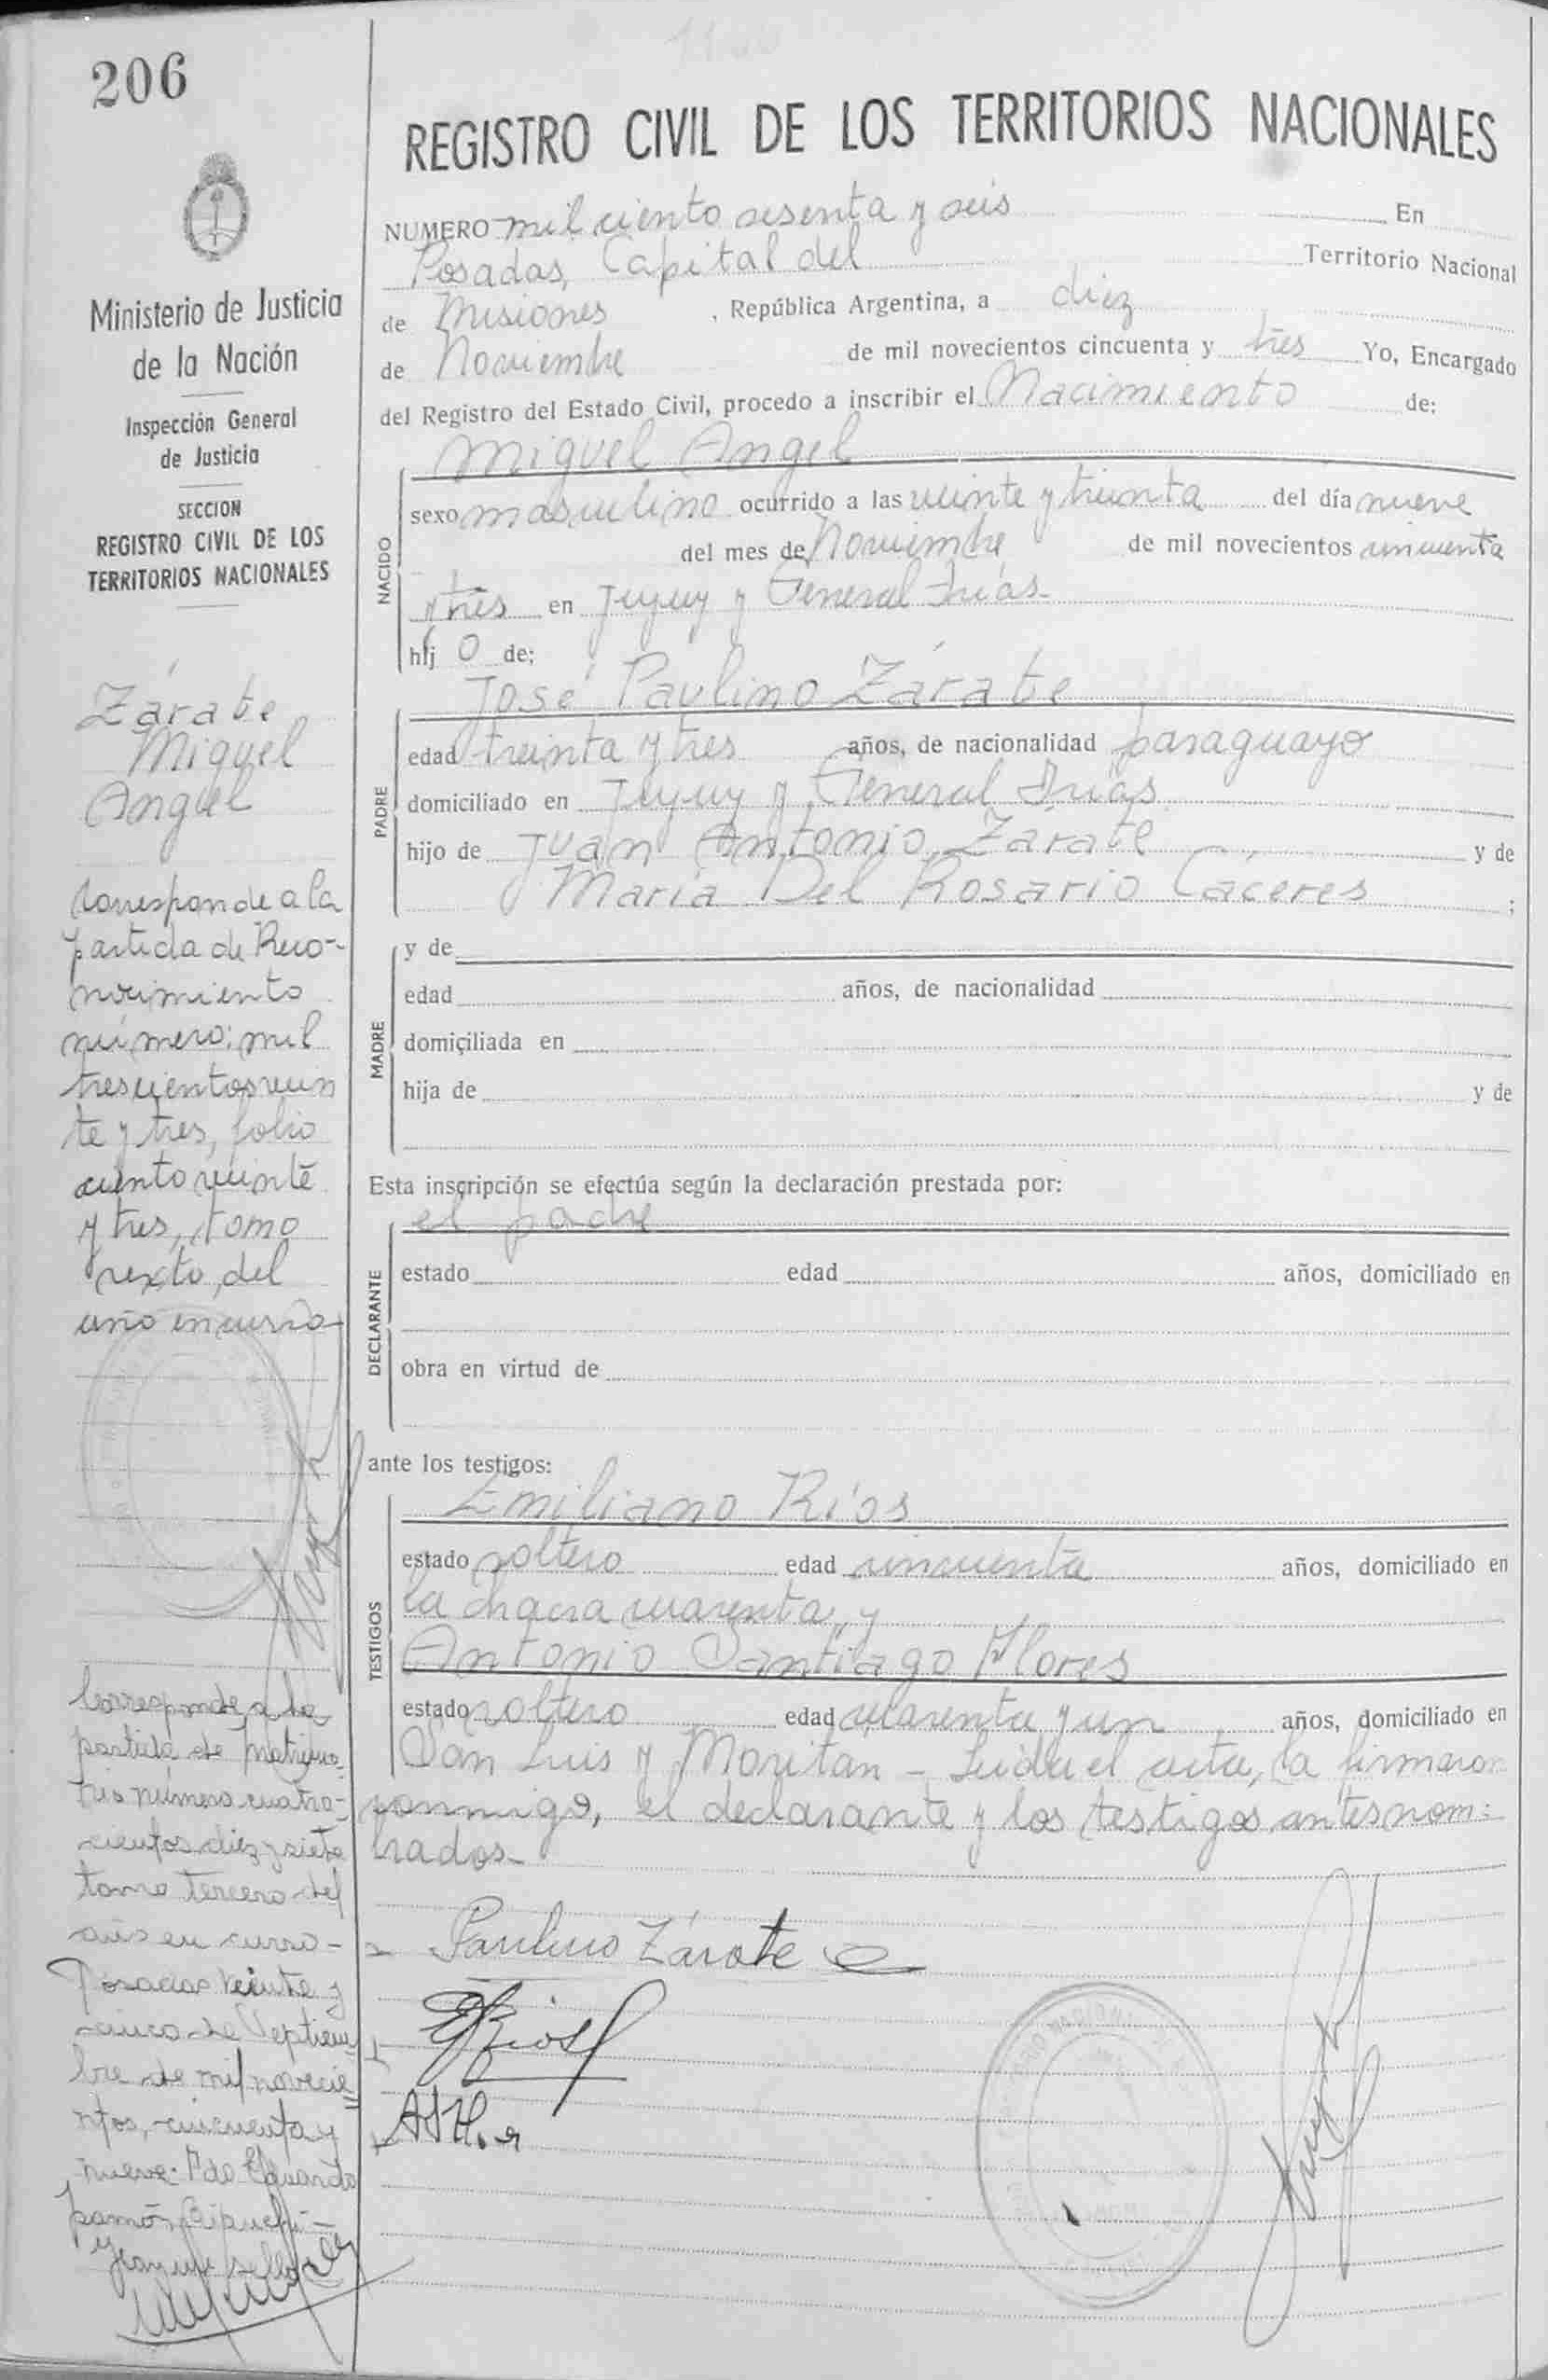 206
Ministerio de Justicia
de la Nación
Inspección General
de Justicia
SECCION
REGISTRO CIVIL DE LOS
TERRITORIOS NACIONALES
Zárate
Miguel
Angel
Corresponde a la
partida de Reco-
nocimiento
número: mil
trescientos vein
te y tres, folio
ciento veinte
y tres, tomo
sexto, del
año en curso-
Corresponde a la
partida de Matrimo-
nio número cuatro-
cientos diez y siete
tomo tercero del
año en curso-
Posadas veinte y
cinco de Septiem
bre de mil novecie
ntos, cincuenta y
nueve. Fdo Eduardo
Ramón
REGISTRO CIVIL DE LOS TERRITORIOS NACIONALES
NUMERO mil ciento sesenta y seis En
Posadas, Capital del Territorio Nacional
de Misiones , República Argentina, a diez
de Noviembre de mil novecientos cincuenta y tres Yo, Encargado
del Registro del Estado Civil, procedo a inscribir el Nacimiento de:
Miguel Angel
NACIDO
sexo masculino ocurrido a las veinte y treinta del día nueve
del mes de Noviembre de mil novecientos cincuenta
y tres en Jujuy y General Frías-
hij o de:
José Paulino Zárate
PADRE
edad treinta y tres años, de nacionalidad paraguayo
domiciliado en Jujuy y General Frías
hijo de Juan Antonio Zárate y de
María Del Rosario Cáceres ;
MADRE
y de
edad años, de nacionalidad
domiciliada en
hija de y de
Esta inscripción se efectúa según la declaración prestada por:
el padre
DECLARANTE
estado edad años, domiciliado en
obra en virtud de
ante los testigos:
Emiliano Ríos
TESTIGOS
estado soltero edad cincuenta años, domiciliado en
la chacra cuarenta, y
Antonio Santiago Flores
estado soltero edad cuarenta y un años, domiciliado en
San Luis y Moritan - Leída el acta, la firmaron
conmigo, el declarante y los testigos antes nom:
brados-
Paulino Zárate